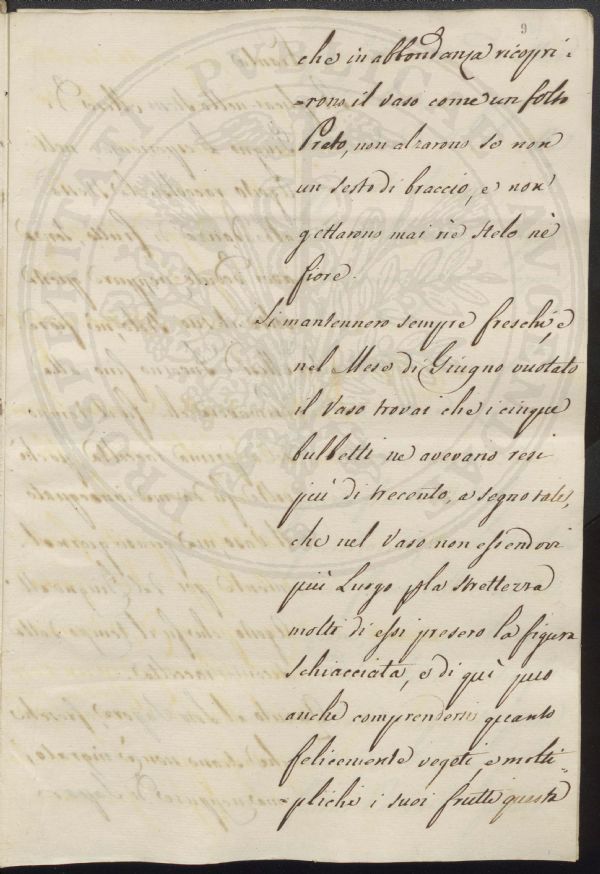 9
che in abbondanza ricopri=
=rono il vaso come un folto
Prato, non alzarono se non
un sesto di braccio, e non
gettarono mai nè stelo nè
fiore.
Si mantennero sempre freschi, e
nel Mese di Giugno vuotato
il Vaso trovai che i cinque
bulbetti ne avevano resi
più di trecento, a segno tale,
che nel Vaso non essendovi
più Luogo pla strettezza
molti di essi presero la figura
schiacciata, e di quì può
anche comprendersi quanto
felicemente vegeti, e molti=
pliche i suoi frutti questa